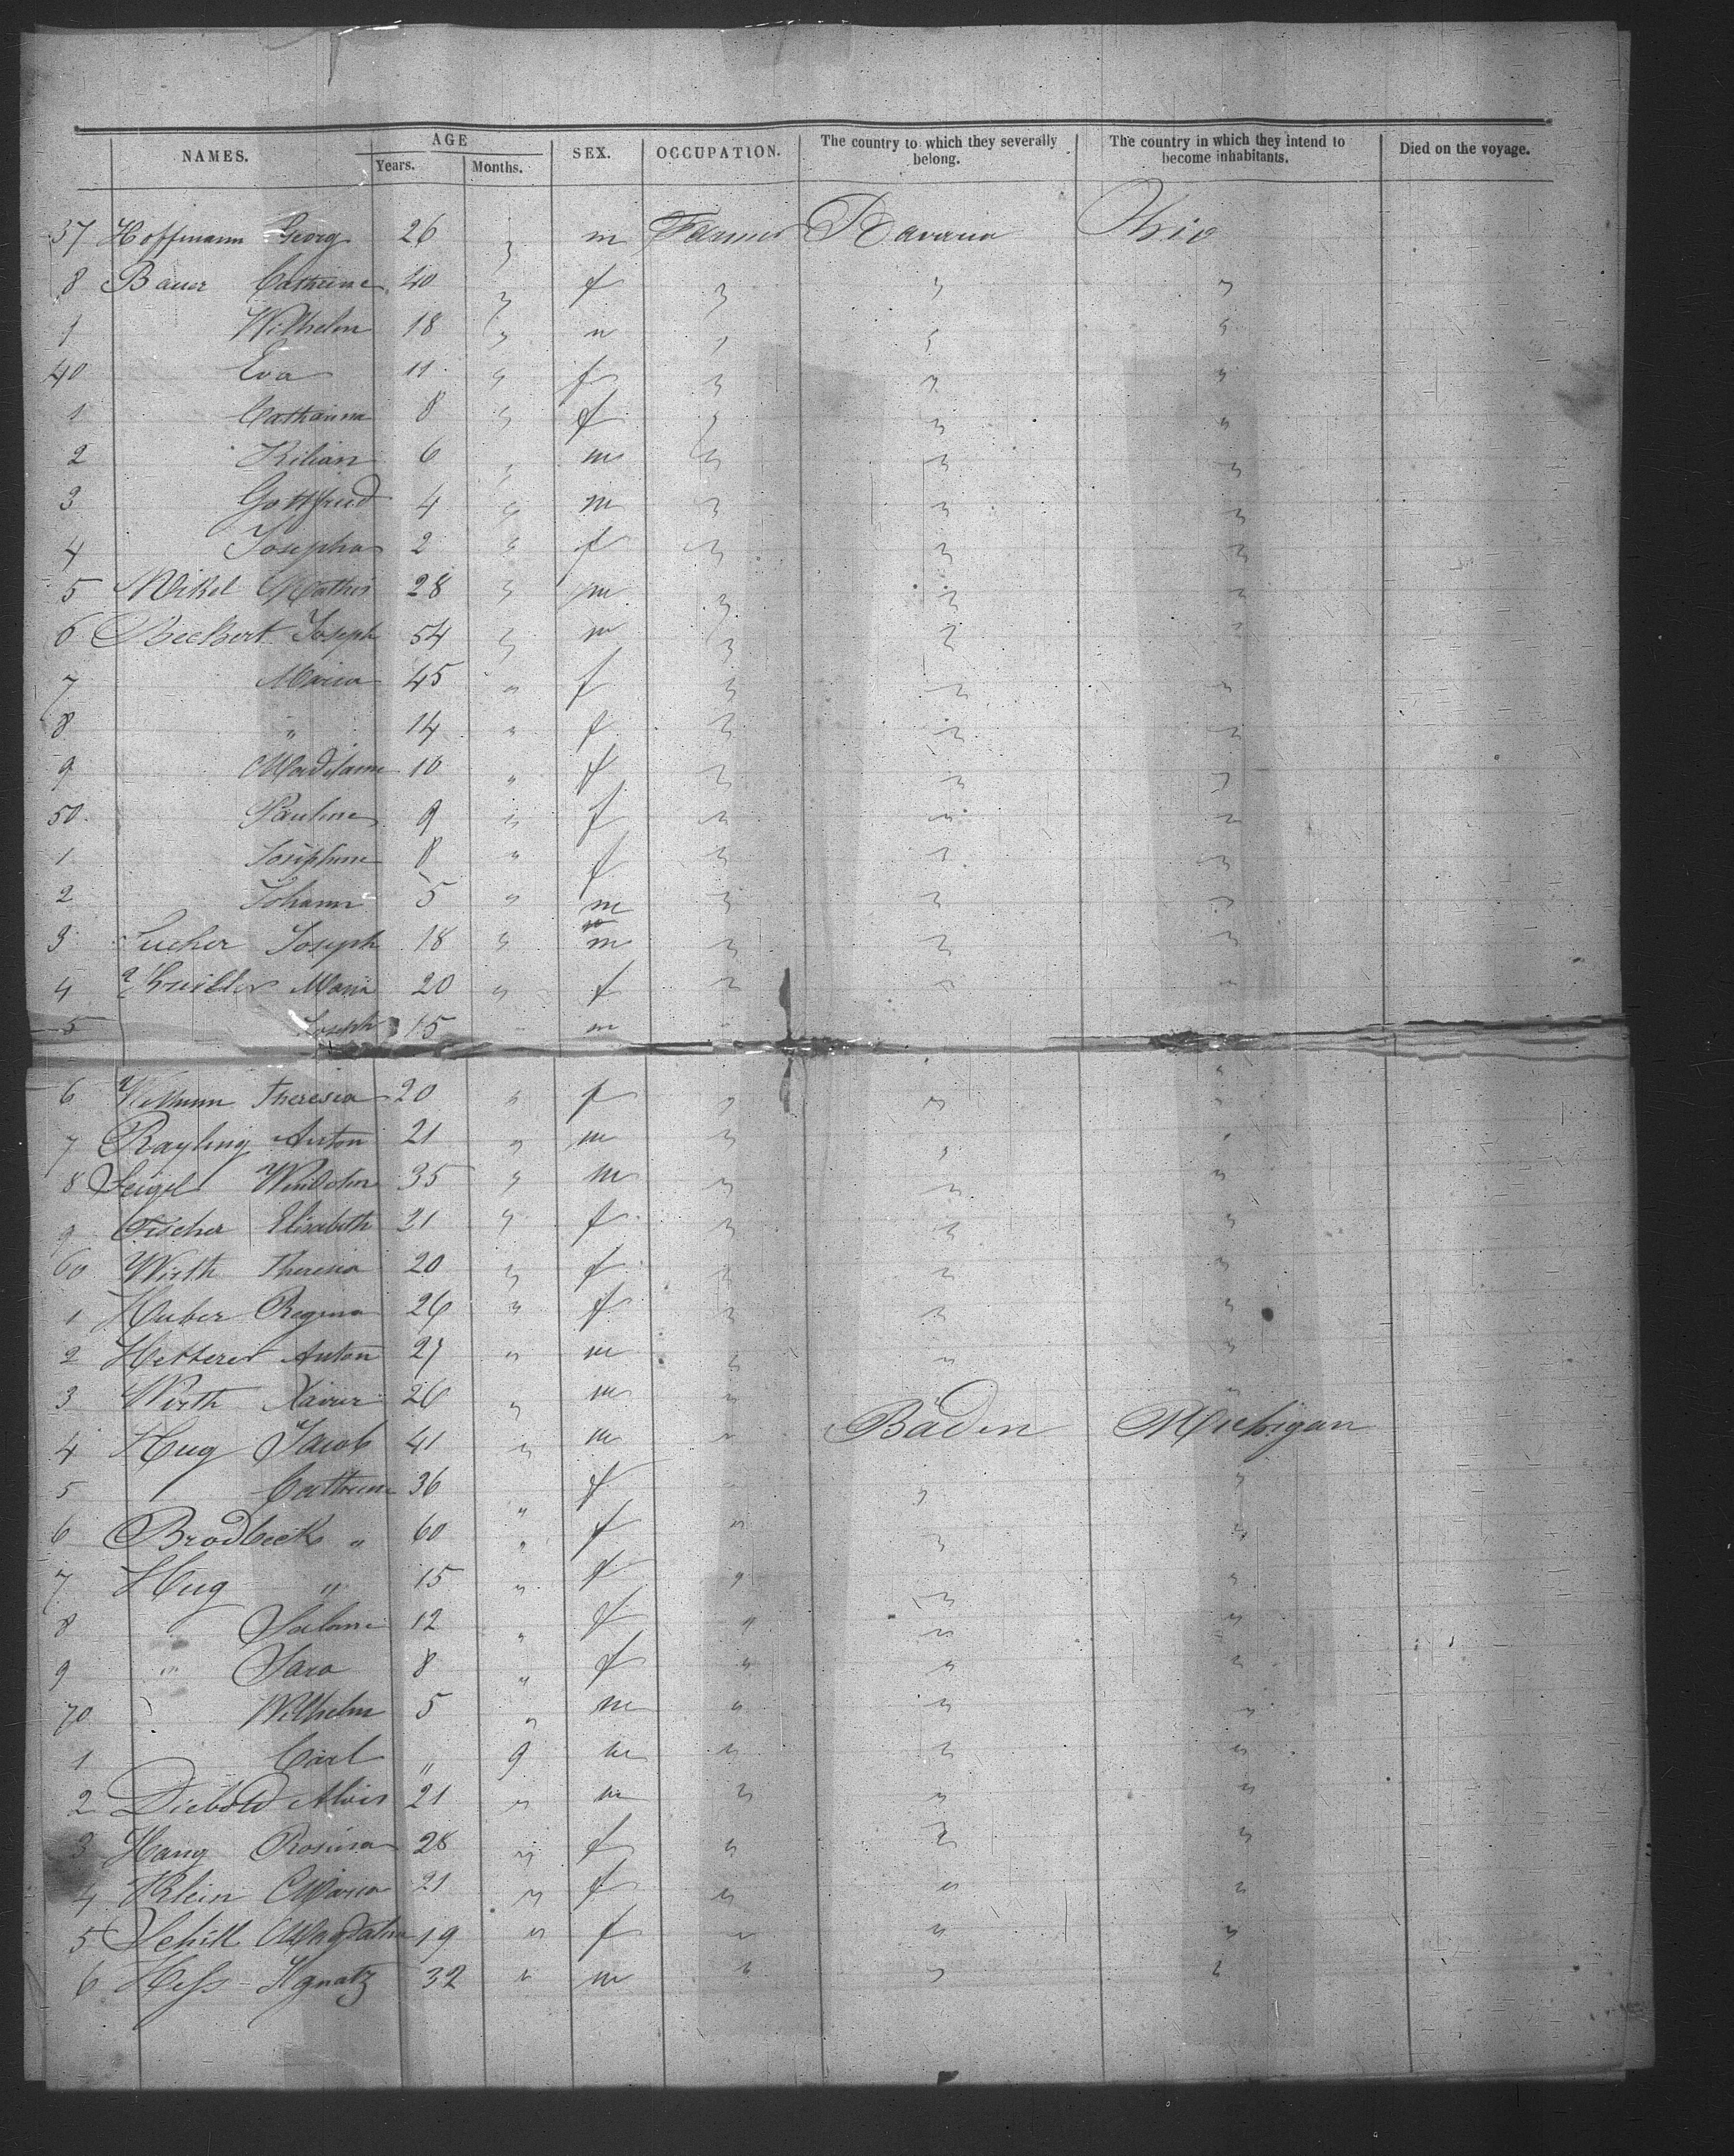 NAMES. AGE Years. Months. SEX. OCCUPATION. The country to which they severally belong. The country in which they intend to become inhabitants. Died on the voyage.
37 Hoffmann Georg 26 " m Farmer Bavaria Ohio
8 Bauer Cathrine 40 " f " " "
1 Wilhelm 18 " m " " "
40 Eva 11 " f " " "
1 Catharina 8 " f " " "
2 Kilian 6 " m " " "
3 Gottfried 4 " m " " "
4 Josepha 2 " f " " "
5 Mikel Mathis 28 " m " " "
6 Beckert Joseph 54 " m " " "
7 Maria 45 " f " " "
8 " 14 " f " " "
9 10 " f " " "
50. Pauline 9 " f " " "
1 Josephine 8 " f " " "
2 Johann 5 " m " " "
3 Joseph 18 " m " " "
4 Maria 20 " f " " "
5 Joseph 15 " m
6 Theresia 20 " f " " "
7 Rayling Anton 21 " m " " "
8 Seigel 35 " m " " "
9 Fischer Elisabeth 21 " f " " "
60 Wirth Theresia 20 " f " " "
1 Huber Regina 26 " f " " "
2 Hetterer Anton 27 " m " " "
3 Wirth Xavier 26 " m " " "
4 Hug Jacob 41 " m " Baden Michigan
5 Cathrine 36 " f " " "
6 Brodbeck " 60 " f " " "
7 Hug " 15 " f " " "
8 " Salome 12 " f " " "
9 " Sara 8 " f " " "
70 " Wilhelm 5 " m " " "
1 Carl " 9 m " " "
2 Diebold Alois 21 " m " " "
3 Haug Rosina 28 " f " " "
4 Klein Maria 21 " f " " "
5 Schill Magdalena 19 " f " " "
6 Hess Ignatz 32 " m " " "